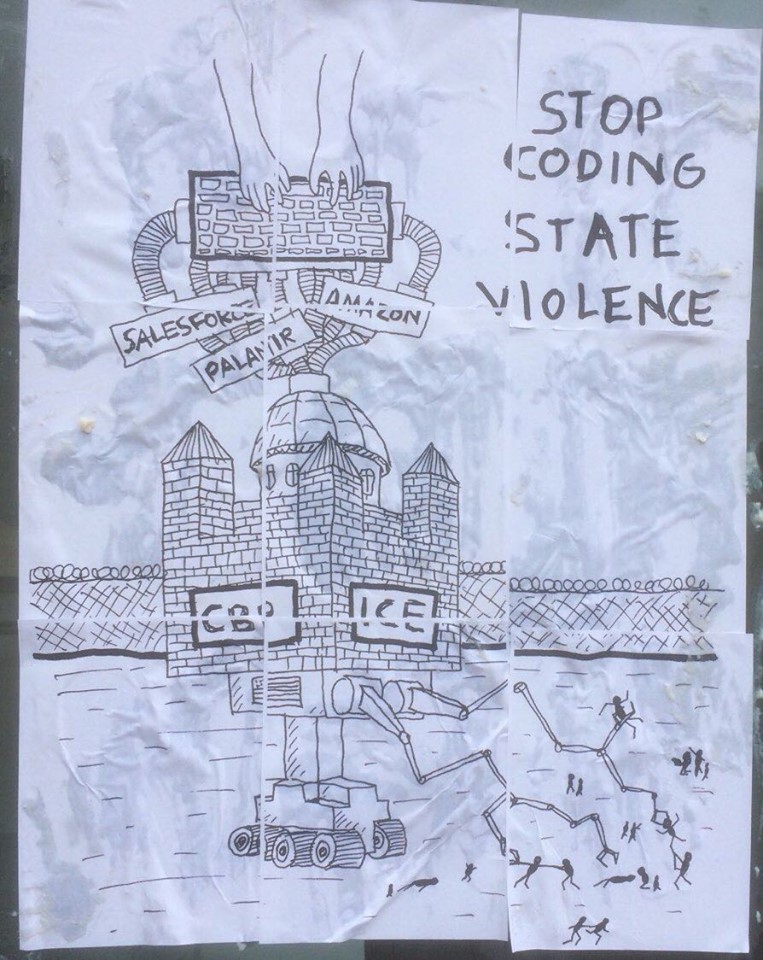 STOP
CODING
STATE
VIOLENCE
SALESFORCE
AMAZON
PALANTIR
CBP
ICE